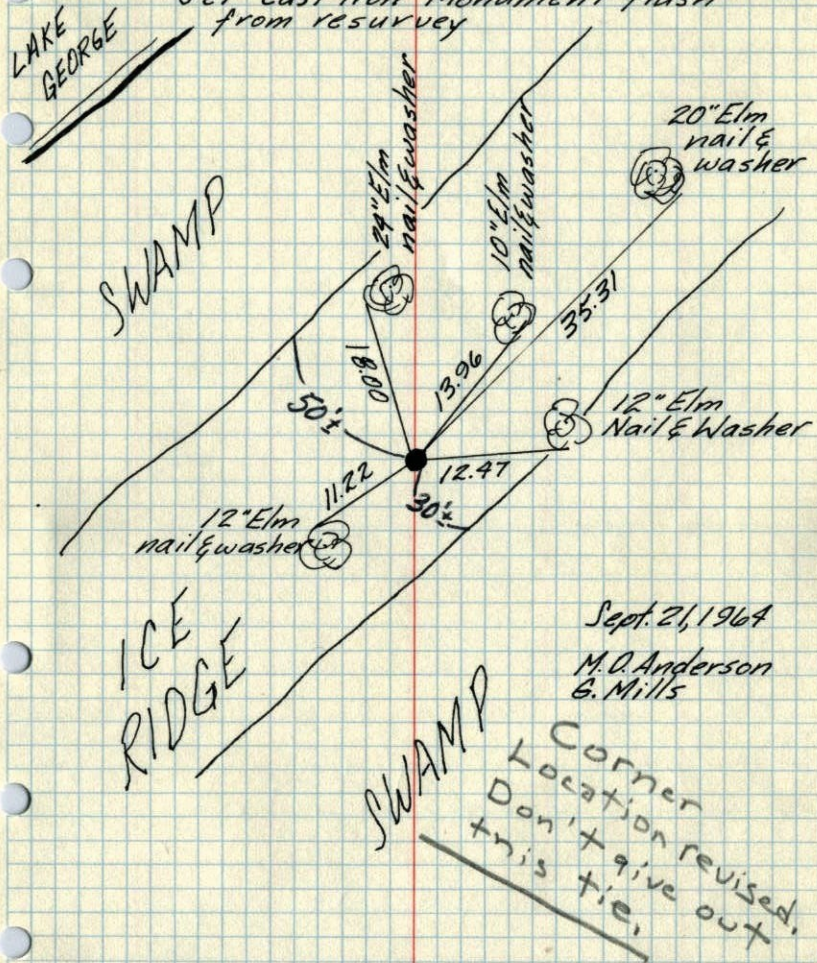 Set Cast Iron Monument flush
from resurvey
LAKE
GEORGE
SWAMP
24"Elm
nail&washer
10"Elm
nail&washer
20"Elm
nail &
washer
18.00
13.96
35.31
50'±
12"Elm
Nail & Washer
12.47
11.22
30'±
12"Elm
nail&washer
ICE
RIDGE
Sept. 21, 1964
M.O. Anderson
G. Mills
SWAMP
Corner
Location revised.
Don't give out
this tie.